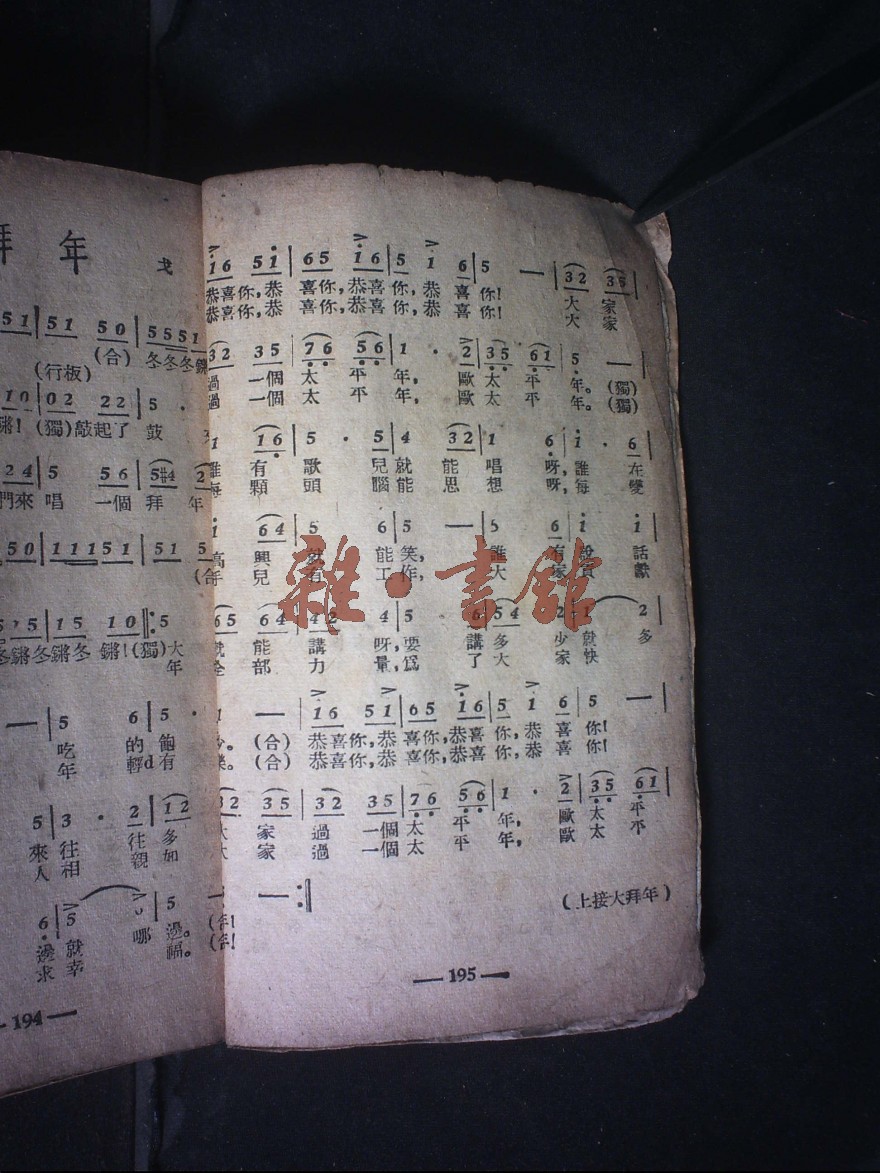 拜年 戈
51 | 51 50 | 5551
(合) 冬冬冬鏘
(行板)
10 | 02 22 | 5 ·
鏘! (獨)敲起了 鼓
24 | 5 56 | 5 #4 2
們來 唱 一個 拜 年
50 | 1 111 51 | 51 5
(合
5 | 15 10 :| 5
冬鏘 冬鏘 鏘! (獨)大
年
— | 5 6 | 5
吃 的 飽
年 輕 有
5 | 3 · 2 | 12
來 往 往 多
人 相 親 如
6 | 5 5
邊 就 哪 邊。
求 幸 福。
—194—
16 51 | 65 16 | 5 · 1 6 | 5 — | 32 35
恭喜你,恭 喜你,恭喜你,恭 喜 你! 大 家
恭喜你,恭 喜你,恭喜你,恭 喜 你! 大 家
32 35 | 76 56 | 1 · 2 | 35 61 | 5 — |
過 一個 太 平 年, 歐 太 平 年。 (獨)
過 一個 太 平 年, 歐 太 平 年。 (獨)
1 16 | 5 · 5 | 4 32 | 1 6 | 1 · 6
誰 有 歌 兒 就 能 唱 呀, 誰 在
每 顆 頭 腦 能 思 想 呀, 每 雙
1 64 | 5 6 | 5 — | 5 6 | 1 1 |
高 興 就 能 笑, 誰 有 說 話
手 兒 有 工 作, 大 家 貢 獻
65 6 | 42 4 | 5 6 | 54 2 | 1 2 |
就 能 講 呀, 要 講 多 少 就 多
全 部 力 量, 爲 了 大 家 快
1 — | 16 51 | 65 16 | 5 · 1 6 | 5 — |
少。 (合) 恭喜你,恭 喜你,恭喜你,恭 喜 你!
樂。 (合) 恭喜你,恭 喜你,恭喜你,恭 喜 你!
32 35 | 32 35 | 76 56 | 1 · 2 | 35 61
大 家 過 一個 太 平 年, 歐 太 平
大 家 過 一個 太 平 年, 歐 太 平
— — :|
年!
年!
(上接大拜年)
—195—
雜·書館